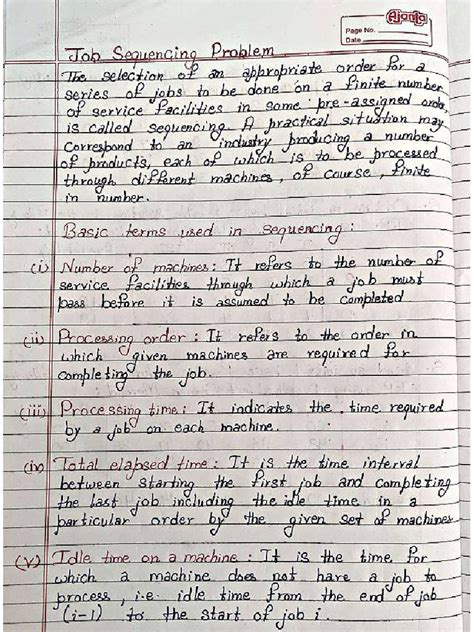 Ajanta
Page No.
Date
Job Sequencing Problem
The selection of an appropriate order for a
series of jobs to be done on a finite number
of service facilities in some pre-assigned order
is called sequencing. A practical situation may
correspond to an industry producing a number
of products, each of which is to be processed
through different machines, of course, finite
in number.
Basic terms used in sequencing:
(i) Number of machines: It refers to the number of
service facilities through which a job must
pass before it is assumed to be completed
(ii) Processing order: It refers to the order in
which given machines are required for
completing the job.
(iii) Processing time: It indicates the time required
by a job on each machine.
(iv) Total elapsed time: It is the time interval
between starting the first job and completing
the last job including the idle time in a
particular order by the given set of machines
(v) Idle time on a machine: It is the time for
which a machine does not have a job to
process, i.e. idle time from the end of job
(i-1) to the start of job i.